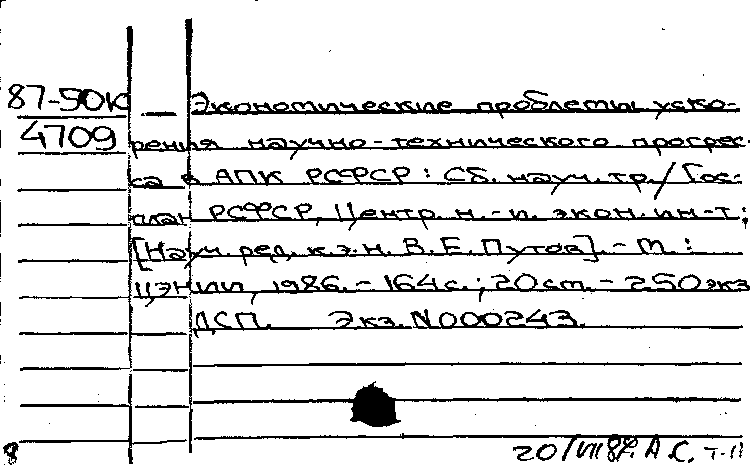 87-50к — Экономические проблемы уско-
4709 рения научно-технического прогрес-
са в АПК РСФСР : Сб. науч. тр. / Гос-
план РСФСР, Центр. н.-и. экон. ин-т;
[Науч. ред. к.э.н. В.Е. Путов]. - М. :
ЦЭНИИ, 1986. - 164 с.; 20 см. - 250 экз
ДСП. Экз. N000243.
8 20/VII 87. А.С.